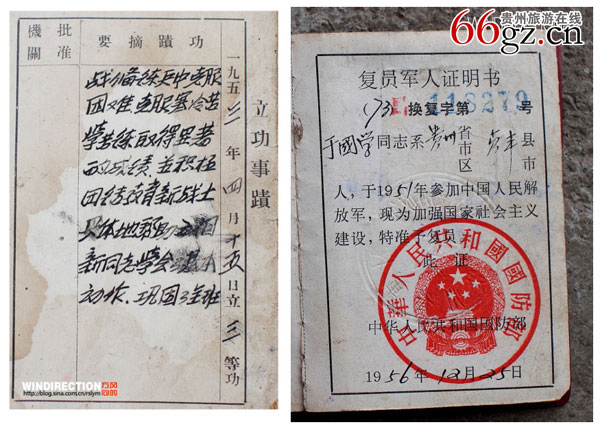 機關
批准
功蹟摘要
战备练兵中克服
困难克服寒冷苦
学苦练取得显著
的成绩并积极
团结教育新战士
具体地帮助
新同志学会
动作、巩固了全班
一九五三年四月十五日立三等功
立功事蹟
WINDIRECTION
http://blog.sina.com.cn/rslym
贵州旅游在线
66gz.cn
复员军人证明书
换复字第 118279 号
于國学同志系贵州省市区 县市
人，于1951年参加中国人民解
放军，现为加强国家社会主义
建设，特准予复员
此证
中華人民共和國國防部
中华人民共和国國防部
1956年12月25日